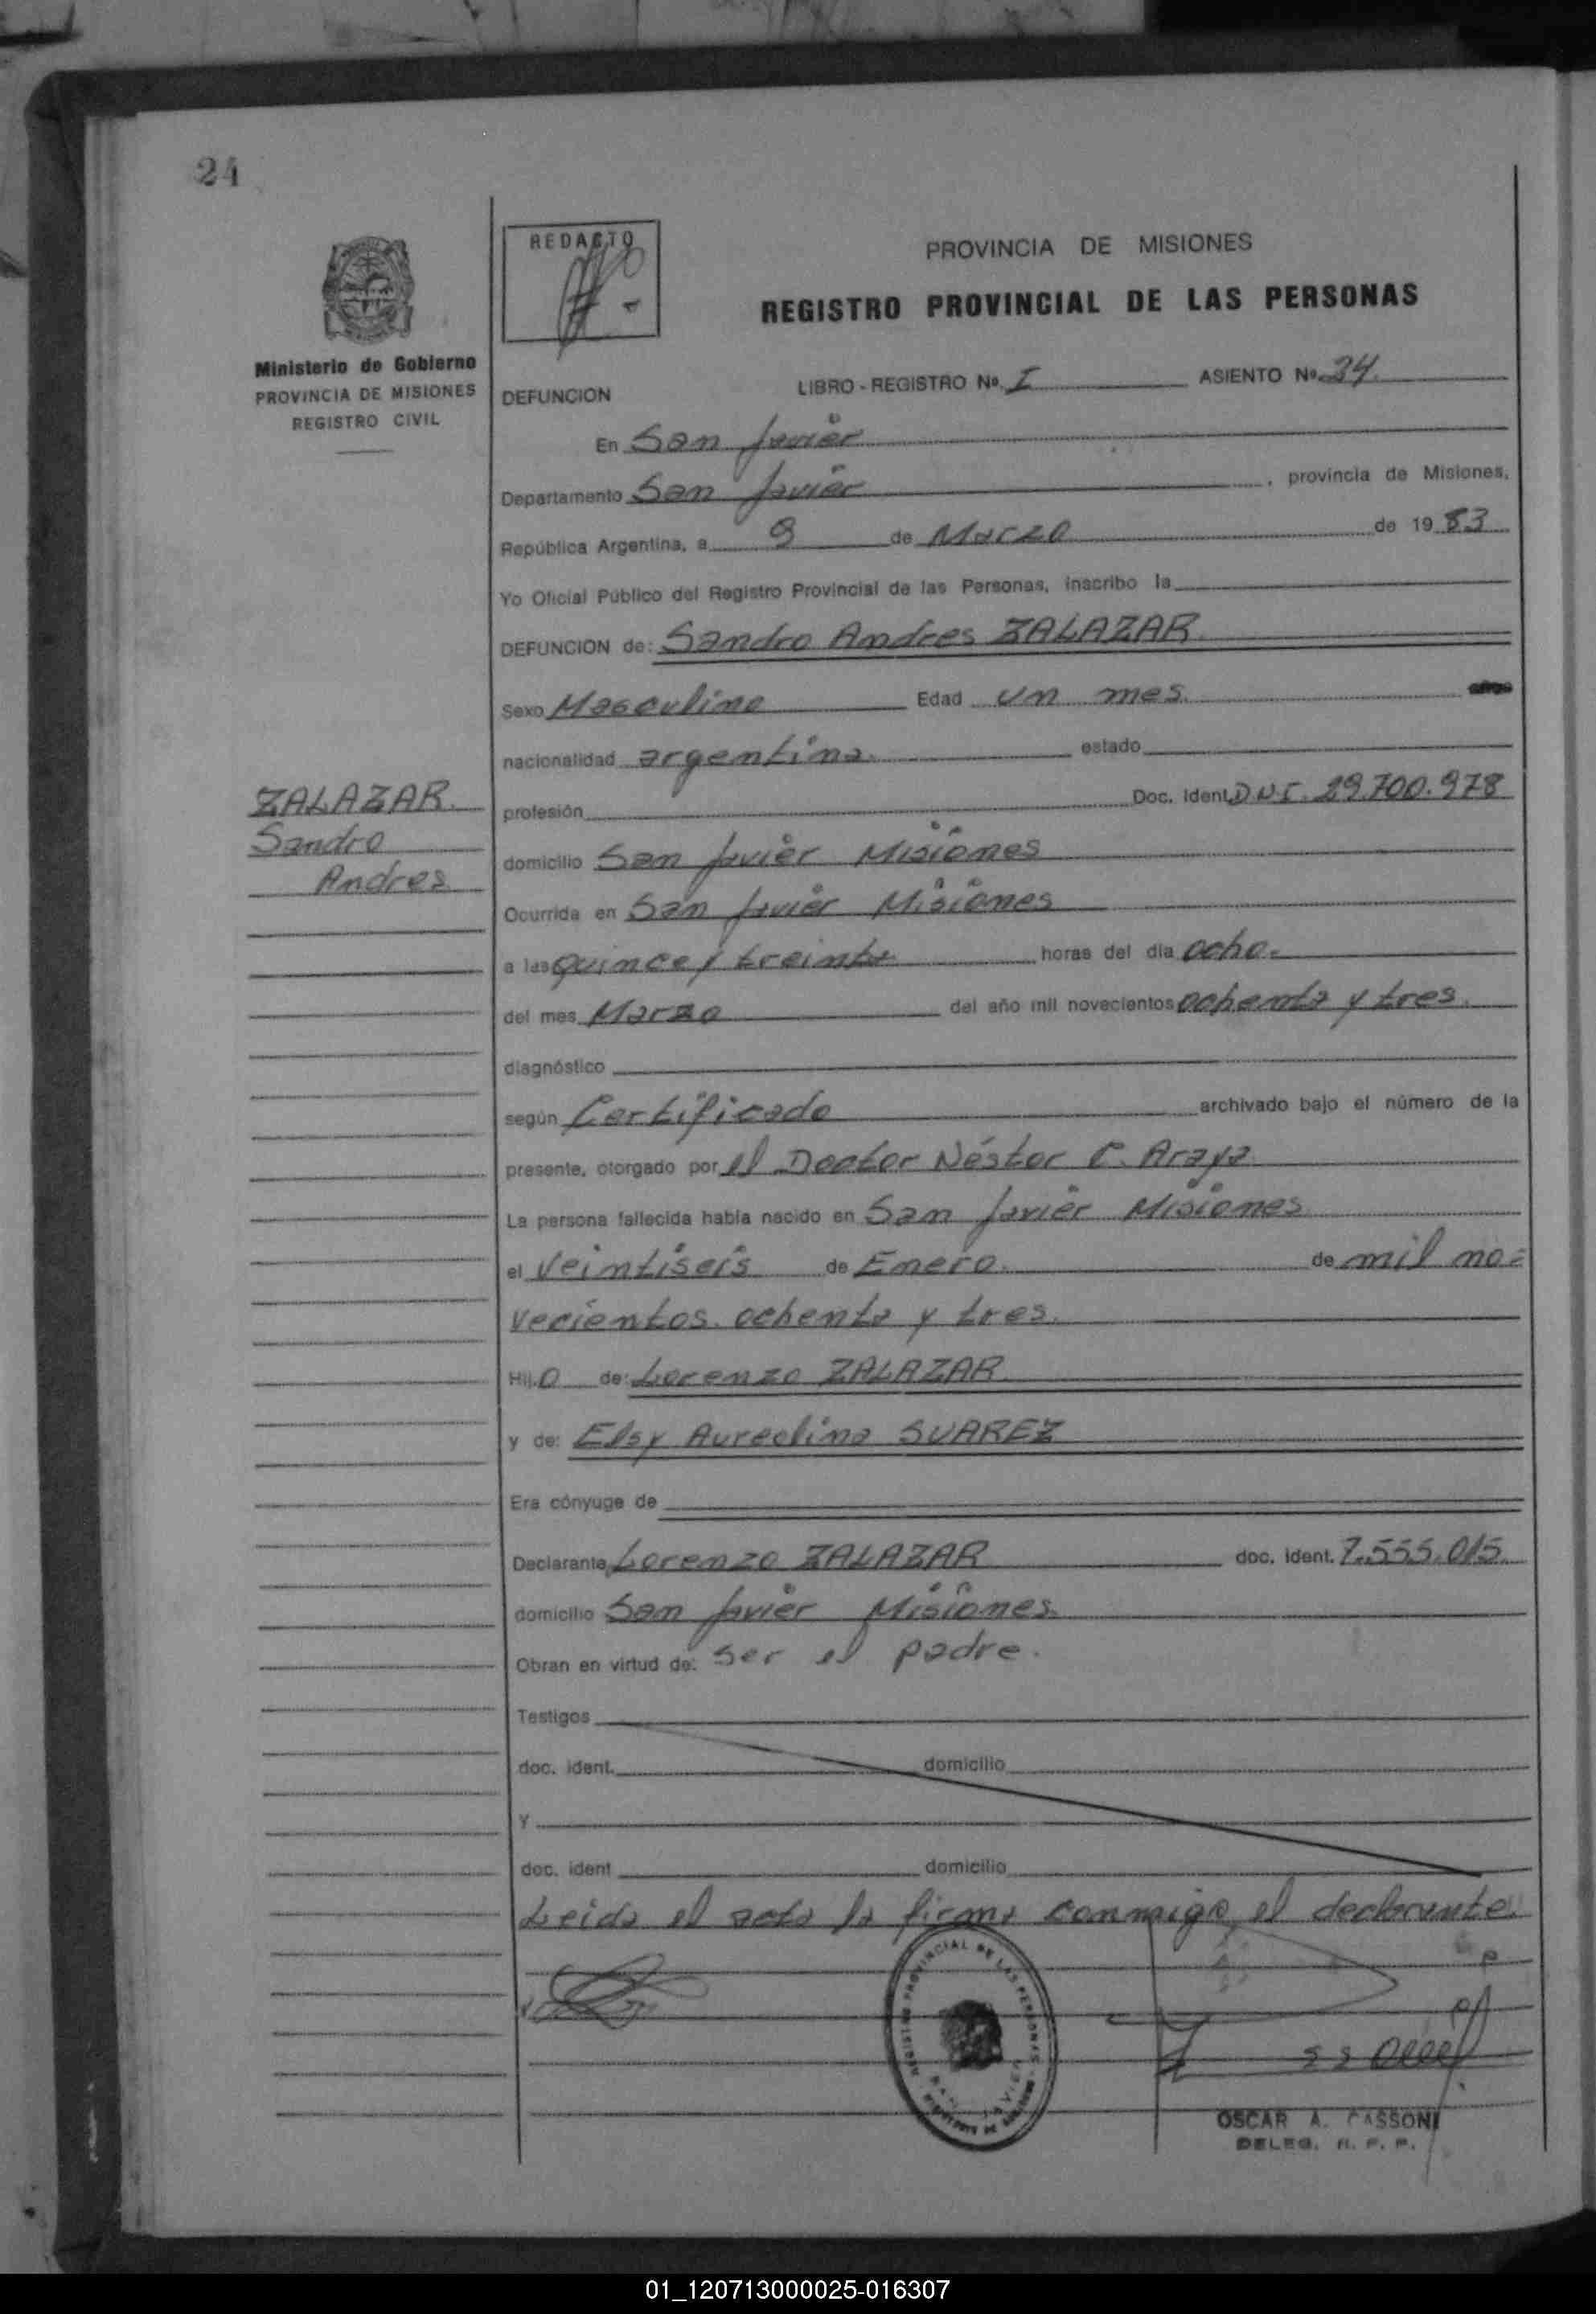 24
REDACTO
PROVINCIA DE MISIONES
REGISTRO PROVINCIAL DE LAS PERSONAS
Ministerio de Gobierno
PROVINCIA DE MISIONES
REGISTRO CIVIL
DEFUNCION LIBRO - REGISTRO Nº I ASIENTO Nº 24
En San Javier
Departamento San Javier, provincia de Misiones,
República Argentina, a 9 de Marzo de 1983
Yo Oficial Público del Registro Provincial de las Personas, inscribo la
DEFUNCION de: Sandro Andres ZALAZAR
Sexo Masculino Edad un mes
nacionalidad argentina. estado
ZALAZAR
Sandro
Andres
profesión Doc. Ident D.N.I. 29.700.978
domicilio San Javier Misiones
Ocurrida en San Javier Misiones
a las quince y treinta horas del día ocho.
del mes Marzo del año mil novecientos ochenta y tres.
diagnóstico
según Certificado archivado bajo el número de la
presente, otorgado por el Doctor Néstor C. Araya
La persona fallecida había nacido en San Javier Misiones
el veintiseis de Enero de mil no=
vecientos ochenta y tres.
Hijo de: Lorenzo ZALAZAR
y de: Elsy Aureolina SUAREZ
Era cónyuge de
Declarante Lorenzo ZALAZAR doc. ident. 7.555.015
domicilio San Javier Misiones.
Obran en virtud de: ser el padre.
Testigos
doc. ident. domicilio
Y
doc. ident domicilio
Leida el acta la firma conmigo el declarante.
REGISTRO PROVINCIAL DE LAS PERSONAS
SAN JAVIER
OSCAR A. CASSONI
DELEG. R. P. P.
01_120713000025-016307